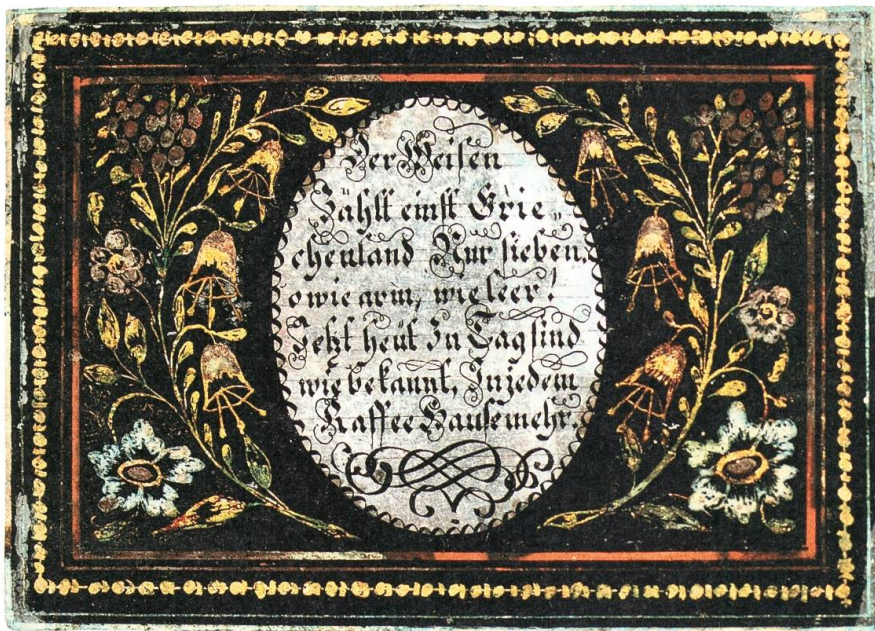 Der Weisen
Zählt einst Grie„
chenland Nur sieben,
o wie arm, wie leer!
Jetzt heüt In Tag sind
wie bekannt, In jedem
Kaffee Hause mehr.